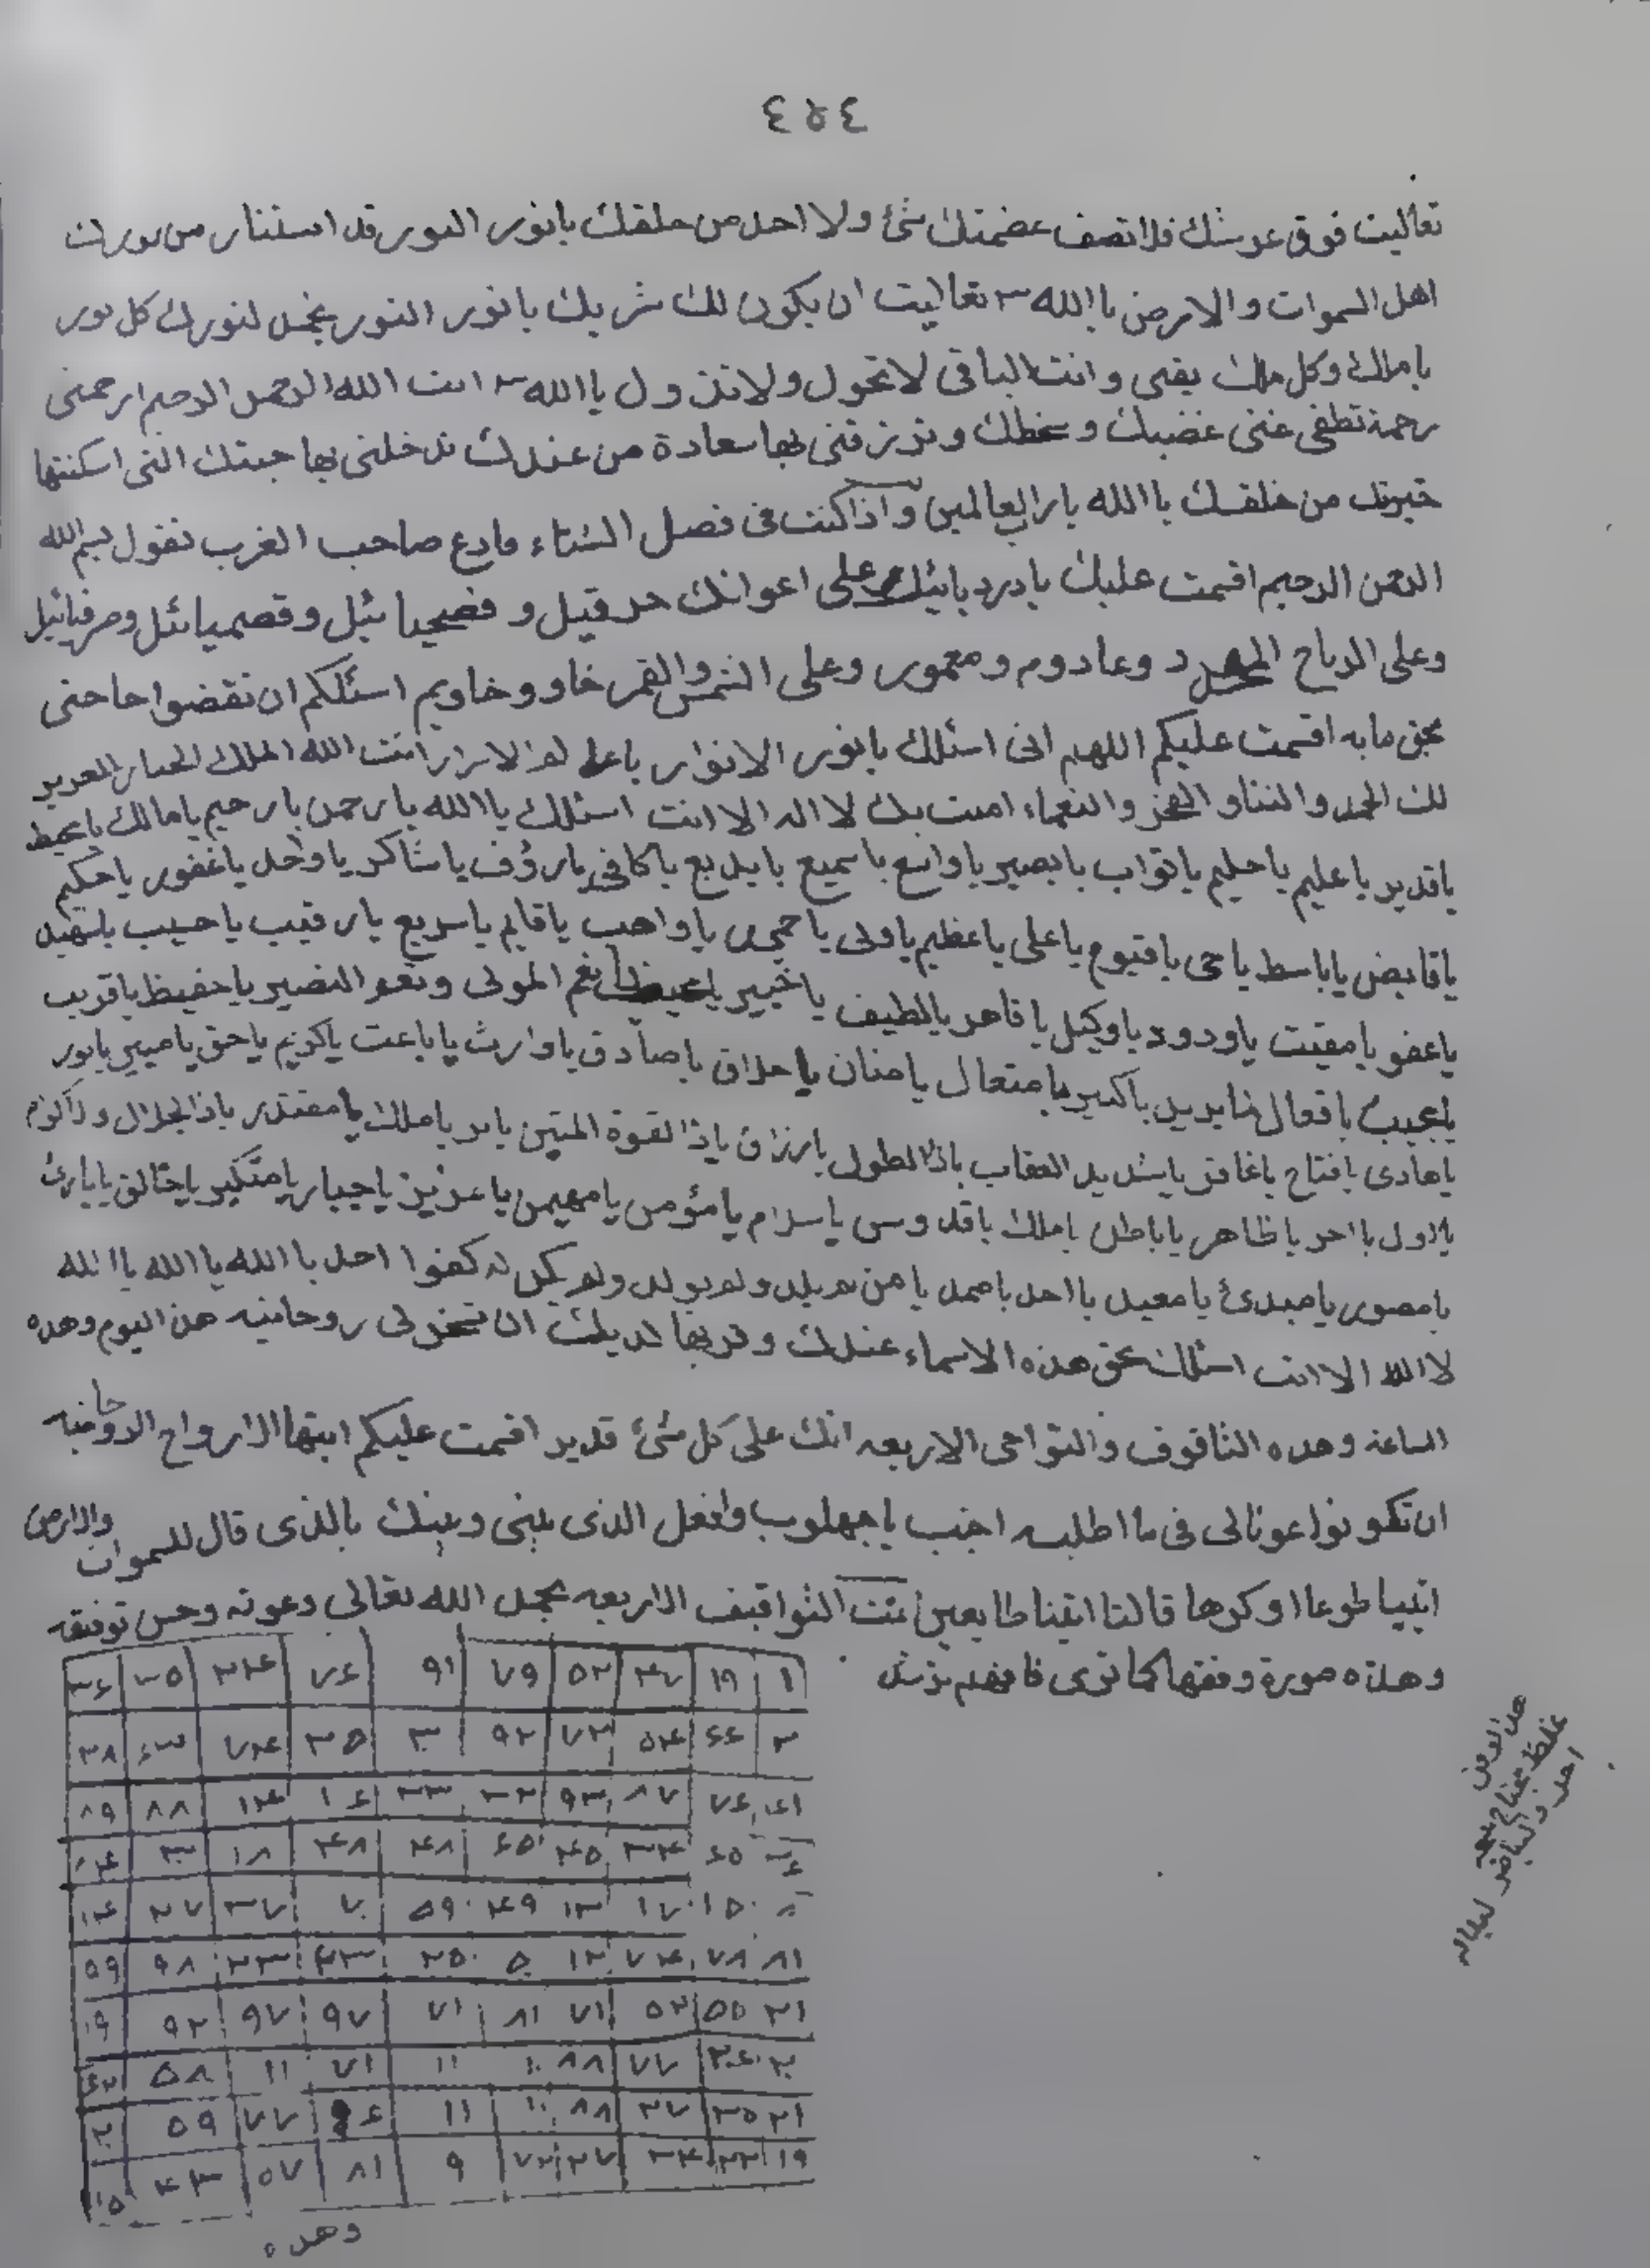 ٤٥٤
تعاليت فوق عرشك فلا تصف عضمتك شئ ولا احد من خلقك يا نور النور قد استنار من نورك
اهل السموات والارض يا الله ٣ تعاليت ان يكون لك شريك يا نور النور خجل لنورك كل نور
يا ملك وكل ملك يفنى وانت الباقى لا تحول ولا تزول يا الله ٣ انت الله الرحمن الرحيم ارحمنى
رحمة تطفى عنى غضبك وسخطك وترزقنى بها سعادة من عندك تدخلنى بها جنتك التى اسكنتها
خيرتك من خلقك يا الله يا رب العالمين واذا كنت فى فصل الشتاء فادع صاحب الغرب تقول بسم الله
الرحمن الرحيم اقسمت عليك يا دردبائيل وعلى اعوانك حرقيل و وقصميائل وصرفيائيل
وعلى الرياح وعادوم ومعمور وعلى الشمس والقمر خاور وخاويم اسئلكم ان تقضوا حاجتى
بحق ما به اقسمت عليكم اللهم انى اسئلك يا نور الانوار يا عالم الاسرار انت الله الملك الجبار العزيز
لك الحمد والثناو الفخر والنعماء امنت بك لا اله الا انت اسئلك يا الله يا رحمن يا رحيم يا مالك يا محيط
يا قدير يا عليم يا حليم يا تواب يا بصير يا واسع يا سميع يا بديع يا كافى يا رؤف يا شاكر يا واحد يا غفور يا حكيم
يا قابض يا باسط يا حى يا قيوم يا على يا عظيم يا ولى يا حميد يا واهب يا قايم يا سريع يا رقيب يا حسيب يا شهيد
يا عفو يا مقيت يا ودود يا وكيل يا قاهر يا لطيف يا خبير نعم المولى ونعم النصير يا حفيظ يا قريب
يا مجيب يا فعال لما يريد يا كبير يا متعال يا منان يا خلاق يا صادق يا وارث يا باعث يا كريم يا حق يا مبين يا نور
يا هادى يا فتاح يا غافر يا شديد العقاب يا ذا الطول يا رزاق يا ذا القوة المتين يا بر يا ملك يا مقتدر يا ذا الجلال والاكرام
يا اول يا اخر يا ظاهر يا باطن يا ملك يا قدوس يا سلام يا مؤمن يا مهيمن يا عزيز يا جبار يا متكبر يا خالق يا بارئ
يا مصور يا مبدئ يا معيد يا احد يا صمد يا من لم يلد ولم يولد ولم يكن له كفوا احد يا الله يا الله يا الله
لا اله الا انت اسئلك بحق هذه الاسماء عندك وقربها لديك ان تسخر لى روحانيه هذا اليوم وهذه
الساعة وهذه الثاقوف والنواحى الاربعه انك على كل شئ قدير اقسمت عليكم ايتها الارواح الروحانيه
ان تكونوا عونا لى فى ما اطلبه اجب يا جهلوب وافعل الذى بينى وبينك بالذى قال للسموات والارض
ائتيا طوعا او كرها قالتا اتينا طايعين تمت الثواقيف الاربعه بحمد الله تعالى وعونه وحسن توفيقه
وهذه صورة وفقها كما ترى فافهم ترشد
١ ١٩ ٣٧ ٥٢ ٧٩ ٩١ ٧٦ ٢٣۴ ٣٥ ٣٦
٢ ٦٦ ٥۴ ٧٢ ٩٢ ٣ ٣٥ ٧۴ ٣٨
٧٦ ٨٧ ٩٣ ٢٢ ٣٣ ١٦ ١۴ ٨٨ ٨٩
٦٥ ٣۴ ۴٥ ٦٥ ۴٨ ۴٨ ١٨
٨ ١٥ ١٧ ١٣ ۴٩ ٥٩ ٧ ٣٧ ٢٧ ١۴
٨١ ٧٨ ٧۴ ١٢ ٥ ٢٥ ٢٣ ٩٨ ٥٩
٢١ ٥٥ ٥٢ ٧١ ٨١ ٧١ ٩٧ ٩٧ ٩٢ ١٩
٢ ٢٦ ٧٧ ٨٨ ١٠ ١١ ٧١ ١١ ٥٨
٢١ ٣٥ ٢٧ ٨٨ ١٠ ١١ ٧٧ ٥٩ ٢
١٩ ٢٢ ٣۴ ٢٧ ٧٢ ٩ ٨١ ٥٧ ۴٣
هذا الوفق
غلط
وهذه